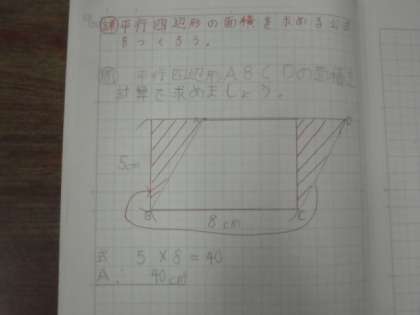 課 平行四辺形の面積を求める公式
をつくろう。
問 平行四辺形ABCDの面積を
計算で求めましょう。
5cm
B
C
8cm
式 5×8=40
A: 40cm²